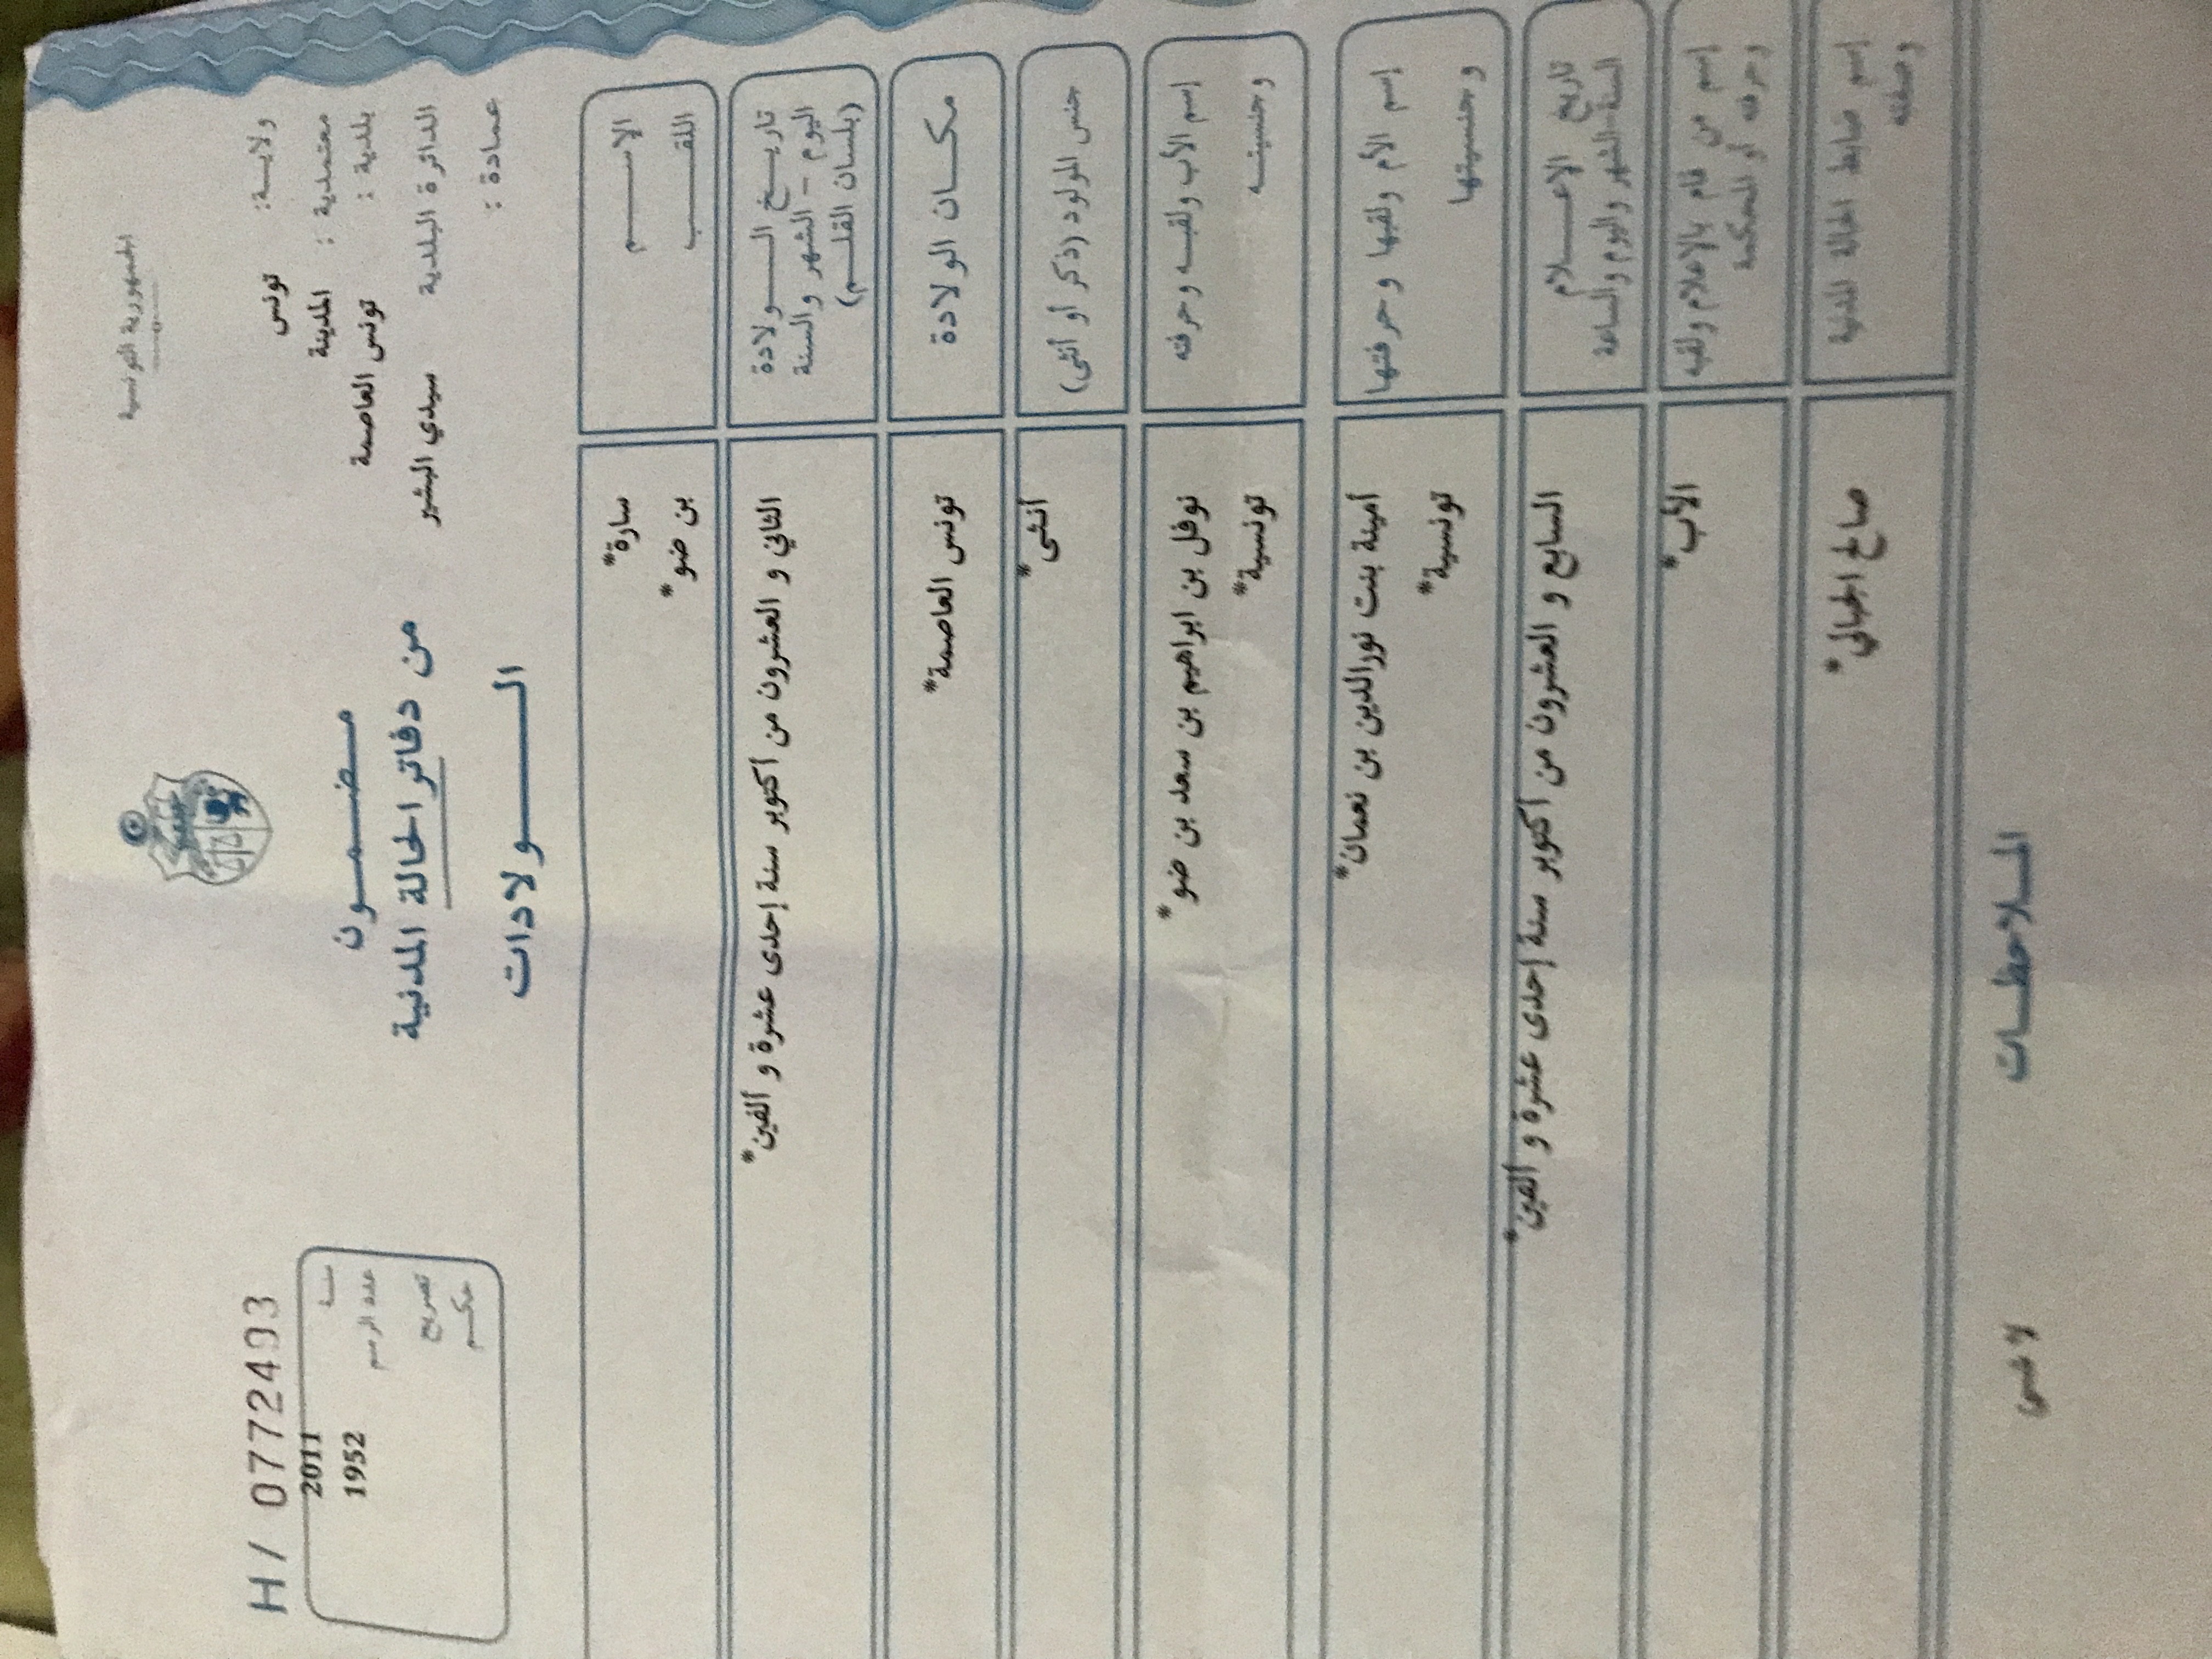 الجمهورية التونسية
ولاية: تونس
معتمدية : المدينة
بلدية : تونس العاصمة
الدائرة البلدية سيدي البشير
عمادة :
مضمون
من دفاتر الحالة المدنية
الولادات
H/ 0772493
سنة 2011
عدد الرسم 1952
تصريح
حكم
الإسم سارة*
اللقب بن ضو*
تاريخ الولادة
اليوم - الشهر والسنة
(بلسان القلم)
الثاني و العشرون من أكتوبر سنة إحدى عشرة و ألفين*
مكان الولادة تونس العاصمة*
جنس المولود (ذكر أو أنثى) أنثى*
إسم الأب ولقبه وحرفته نوفل بن ابراهيم بن سعد بن ضو*
وجنسيته تونسية*
إسم الأم ولقبها وحرفتها أمينة بنت نورالدين بن نعمان*
وجنسيتها تونسية*
تاريخ الإعلام
السنة الشهر واليوم والساعة
السابع و العشرون من أكتوبر سنة إحدى عشرة و ألفين*
إسم من قام بالإعلام ولقبه
وحرفته أو المحكمة
الأب*
إسم ضابط الحالة المدنية
وصفته
صالح الجبالي*
الملاحظات
لا شيء